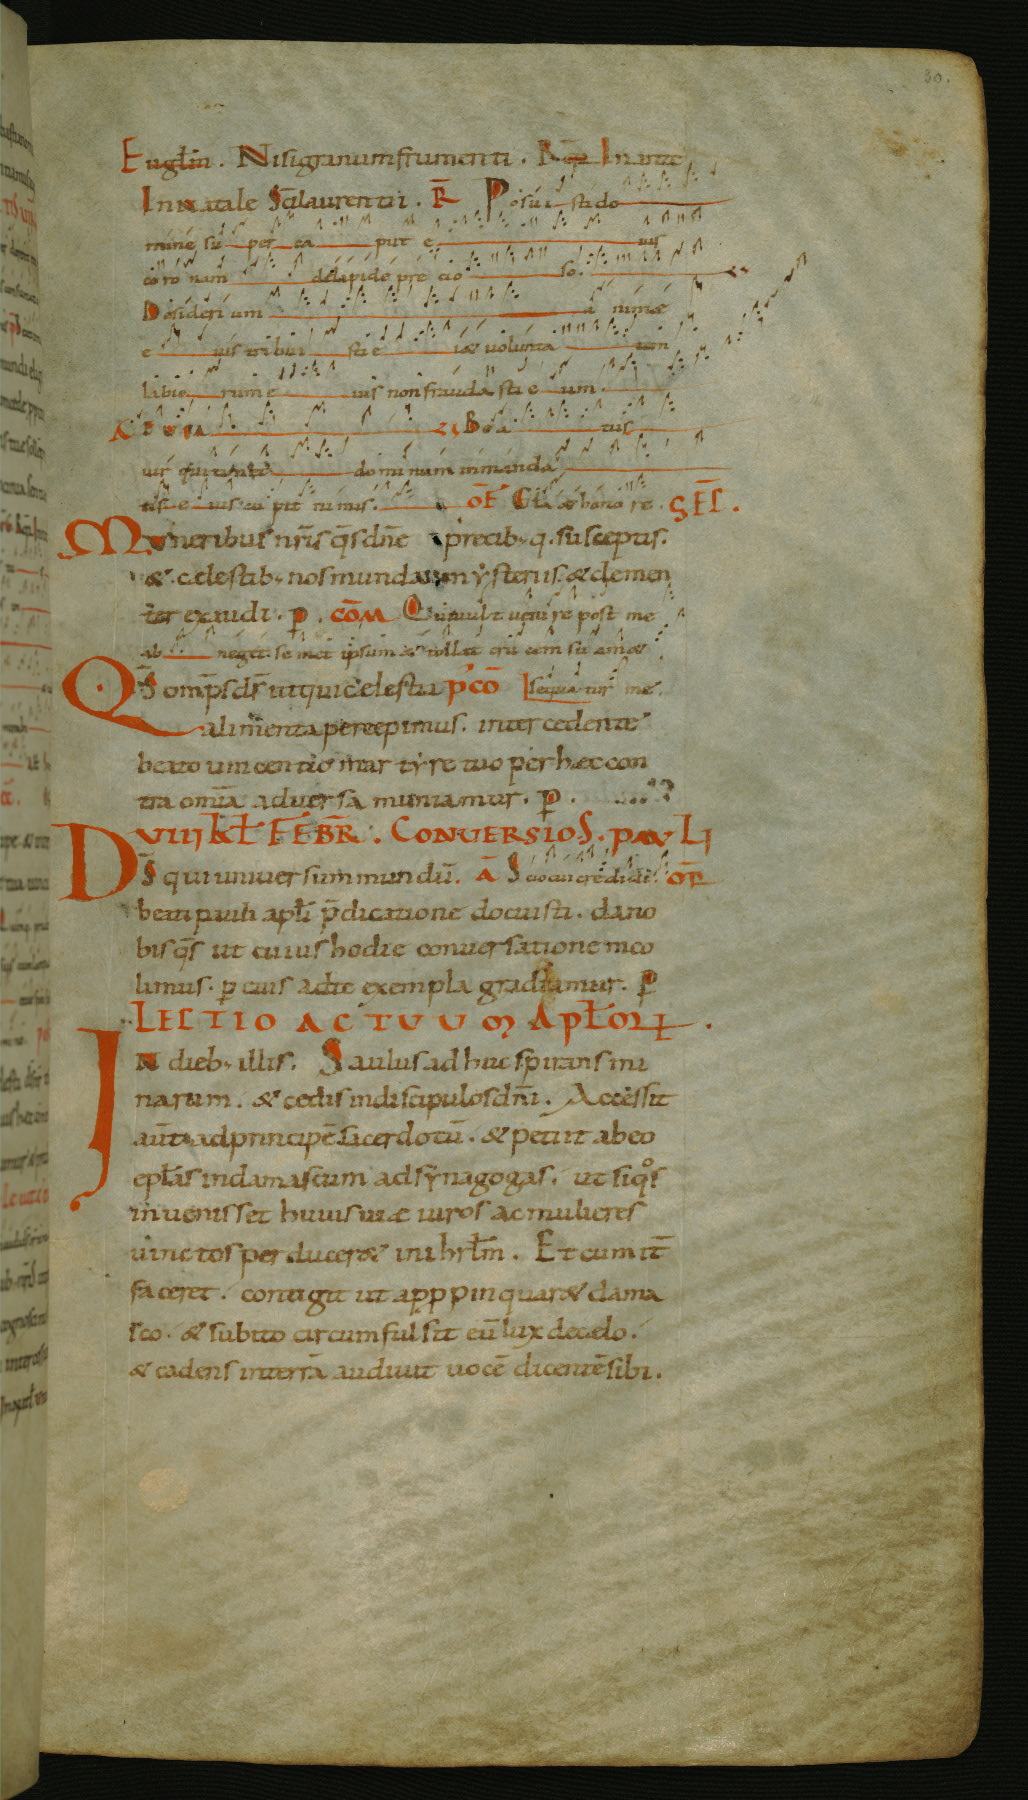 30.
Eugłm. Nisi granum frumenti. Req̄ In nat̄
In natale Sc̄i laurentii. R̄ Posui sti do
mine su per ca put e ius
co ro nam de lapide pre cio so.
Desideri um a nimae
e ius tribui sti e i& volunta tem
labio rum e ius non frauda sti e um.
Bea tus
uir qui tim& do mi num in manda
tis e ius cu pit nimis. OF Gła & hono re. SEC.
Muneribus nr̄is q̄s dn̄e precib; q. susceptis.
& cęlestib; nos munda mysteriis. & clemen
ter exaudi. p̱. COM Qui uult uenire post me
ab neget se met ipsum & tollat crucem suam &
Qs̄ omp̄s ds̄ ut qui cęlestia p̄cō sequatur me.
alimenta percepimus. intercedente
beato uincentio martyre tuo per hęc con
tra om̄ia aduersa muniamur. p̱.
VIII KŁ FEBR̄. CONVERSIO S. PAVLI
Ds̄ qui uniuersum mundū. A̅ Scio cui credidi. OR̄
beati pauli apłi p̄dicatione docuisti. da no
bis q̄s ut cuius hodie conuersationem co
limus. p̱ eius ad te exempla gradiamur. p̱
LECTIO ACTUUM APŁORꝜ.
In dieb; illis. Saulus adhuc spirans mi
narum. & cedis in discipulos dn̄i. Accessit
aut̄ ad principē sacerdotū. & petiit ab eo
epłas in damascum ad synagogas. ut si q°s
inuenisset huius uiae uiros ac mulieres
uinctos perducer& in ihrłm. Et cum it̄
faceret. contigit ut appropinquar& dama
sco. & subito circumfulsit eū lux de cęlo.
& cadens in terrā audiuit uocē dicentē sibi.